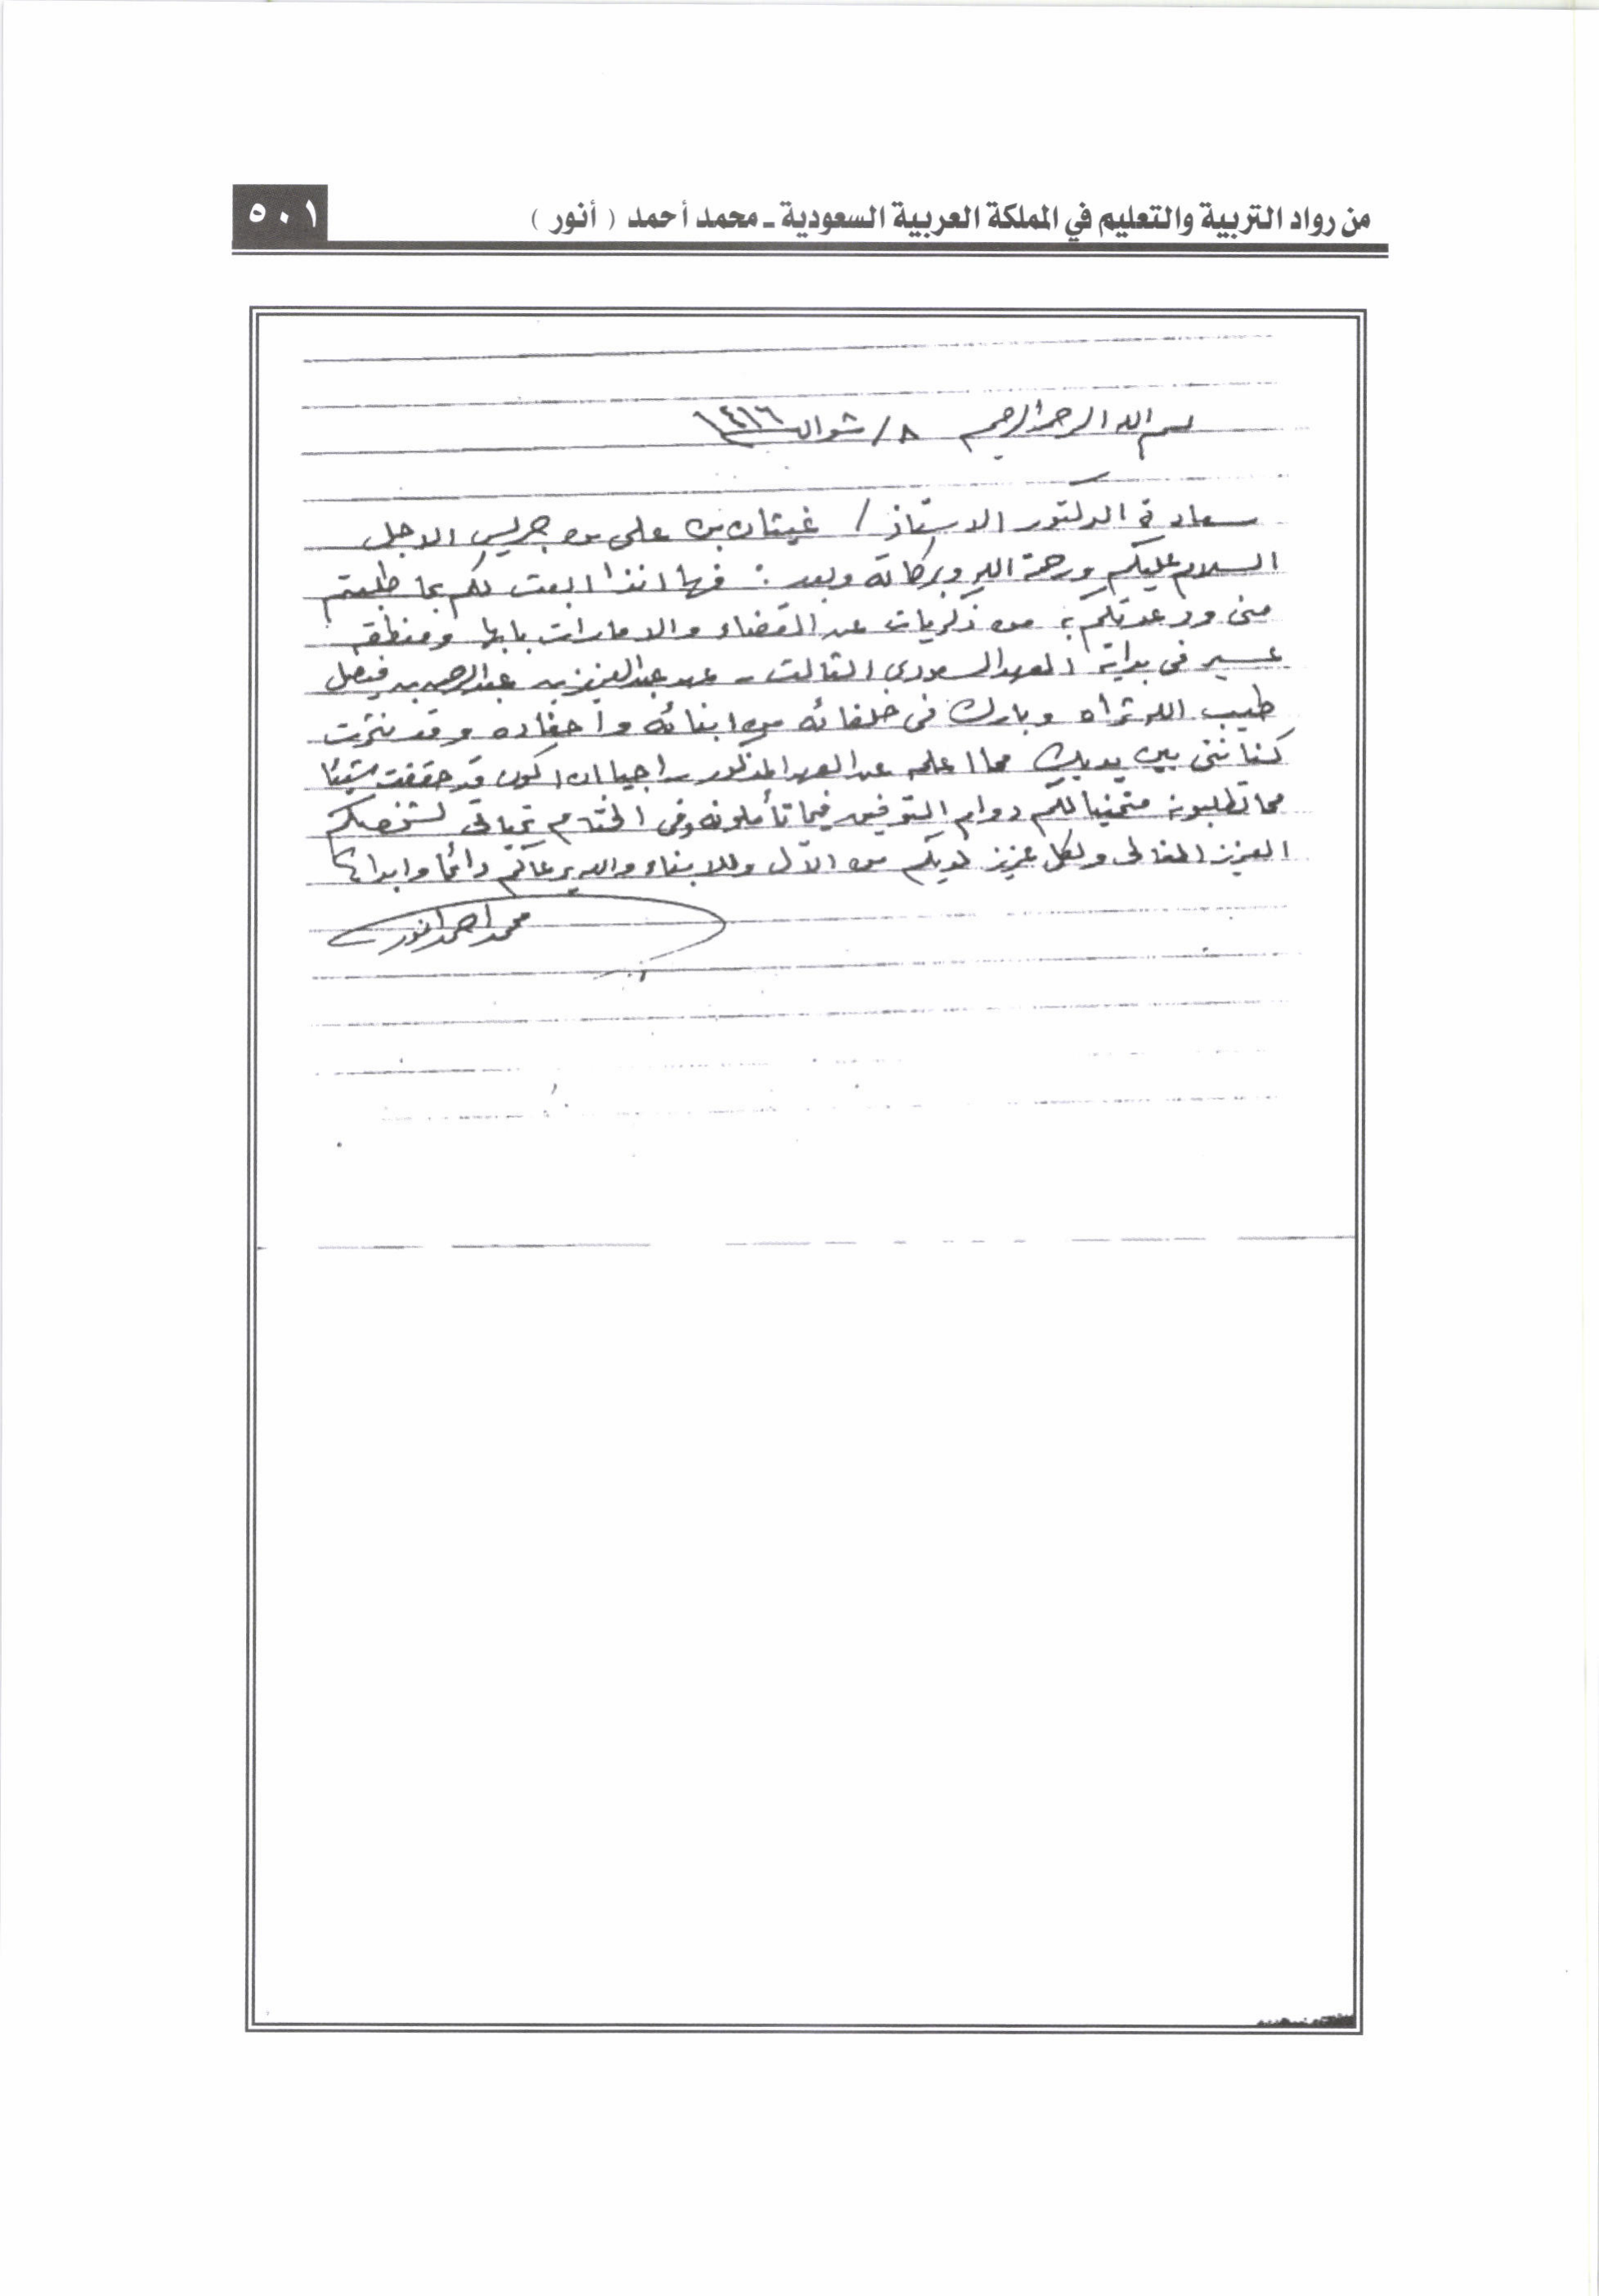 من رواد التربية والتعليم في المملكة العربية السعودية ـ محمد أحمد ( أنور )
٥٠١
بسم الله الرحمن الرحيم ٨/ شوال ١٤١٦
سعادة الدكتور الاستاذ / غيثان بن على بن جريس الاجل
السلام عليكم ورحمة الله وبركاته وبعد : فها انذا ابعث لكم بما طلبتم
منى ووعدتكم به من ذكريات عن القضاء والامارات بابها ومنطقة
عسير فى بداية العهد السعودي الثالث - عهد عبدالعزيز بن عبدالرحمن بن فيصل
طيب الله ثراه وبارك فى خلفائه من ابنائه واحفاده وقد نثرت
كنانتى بين يديك مما اعلم عن العهد المذكور راجيا ان اكون قد حققت شيئا
مما تطلبونه متمنيا لكم دوام التوفيق فيما تأملونه وفى الختام تحياتى لشخصكم
العزيز الغالى ولكل عزيز لديكم من الآل وللابناء والله يرعاكم دائما وابدا
محمد احمد انور